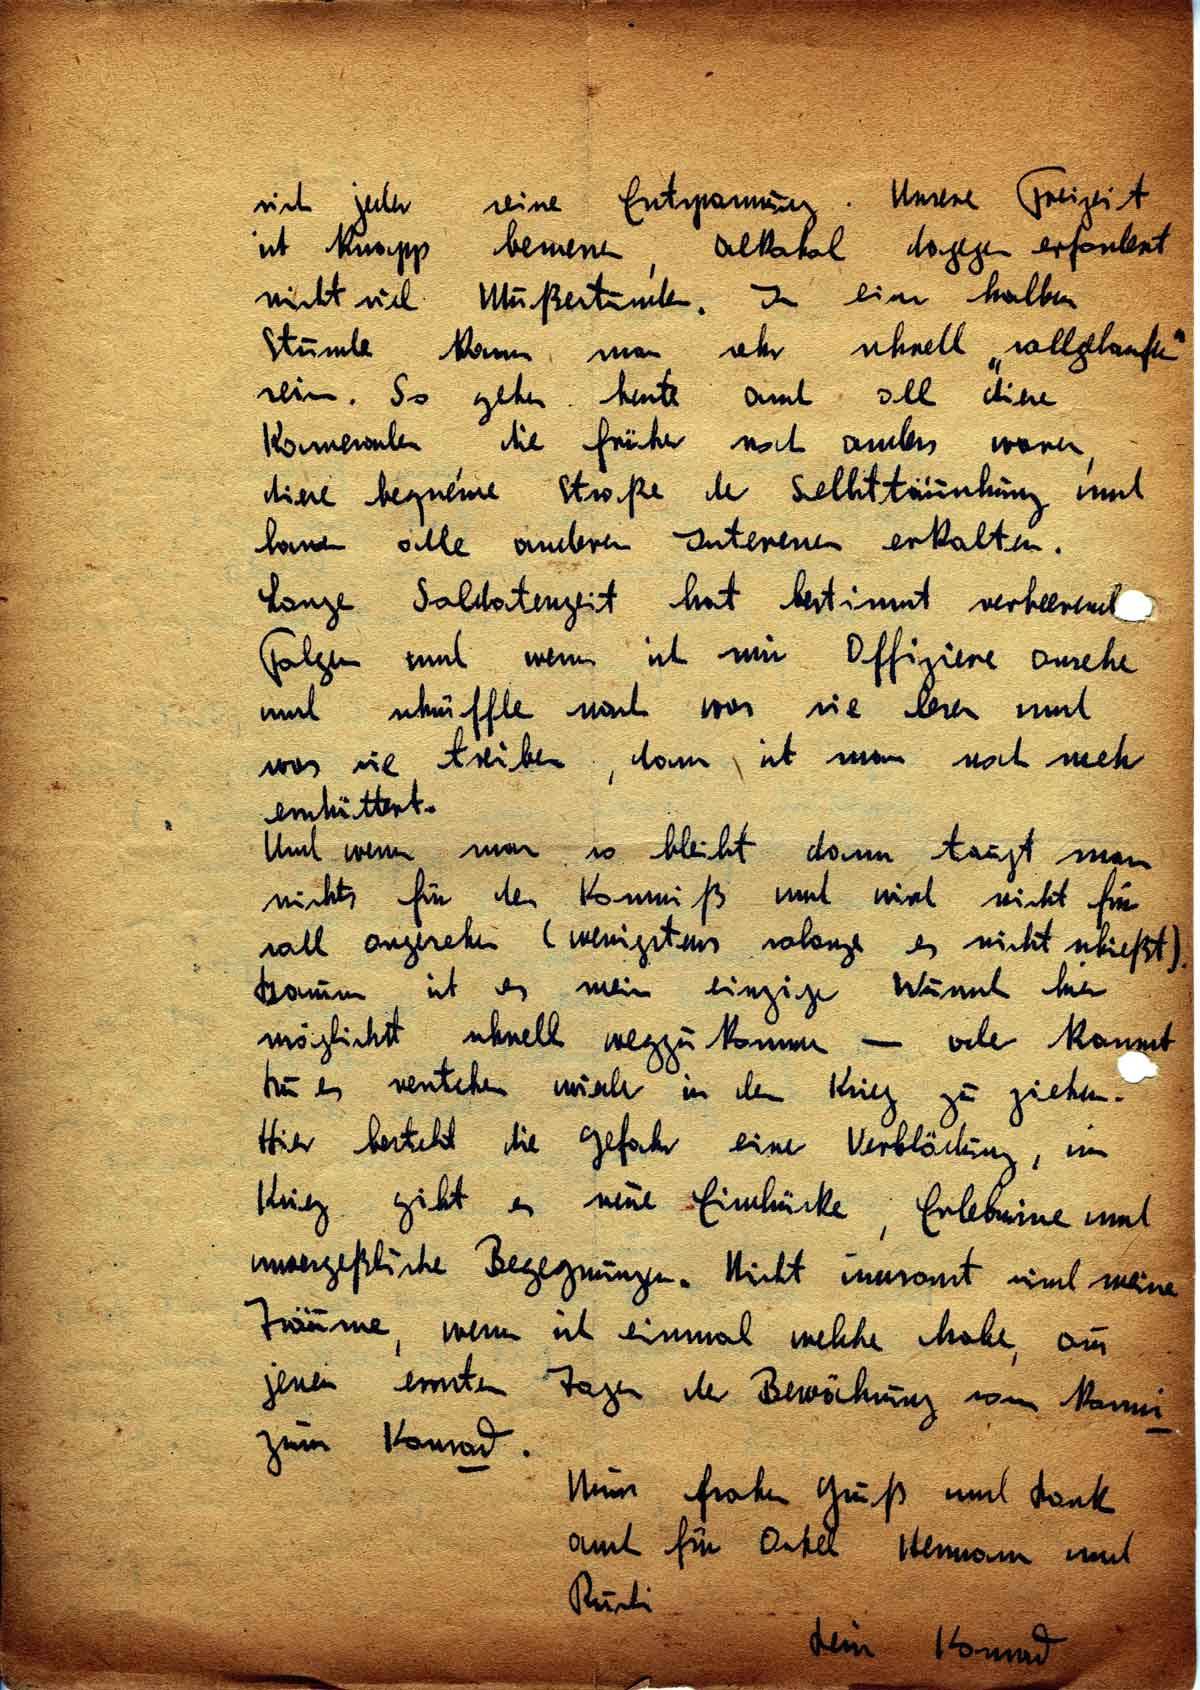 sich jeder seine Entspannung. Unsere Freizeit
ist knapp bemessen, Alkohol dagegen erfordert
nicht viel Mußestunden. In einer halben
Stunde kann man sehr schnell „vollgelaufen"
sein. So gehen heute auch all diese
Kameraden die früher noch anders waren,
diese bequeme Straße der Selbsttäuschung und
lassen alle anderen Interessen erkalten.
Lange Soldatenzeit hat bestimmt verheerend
Folgen und wenn ich mir Offiziere ansehe
und schnüffle nach was sie lesen und
was sie treiben, dann ist man noch mehr
erschüttert.
Und wenn man so bleibt dann taugt man
nichts für den Kommiß und wird nicht für
voll angesehen (wenigstens solange es nicht schießt).
Darum ist es mein einziger Wunsch hier
möglichst schnell wegzukommen — oder kannst
Du es verstehen wieder in den Krieg zu ziehen.
Hier besteht die Gefahr einer Verblödung, im
Krieg gibt es neue Eindrücke, Erlebnisse und
unvergeßliche Begegnungen. Nicht umsonst sind meine
Träume, wenn ich einmal welche habe, aus
jenen ernsten Tagen der Bewährung vom Konni
zum Konrad.
Nun frohen Gruß und Dank
auch für Onkel Hermann und
Rudi
Dein Konrad